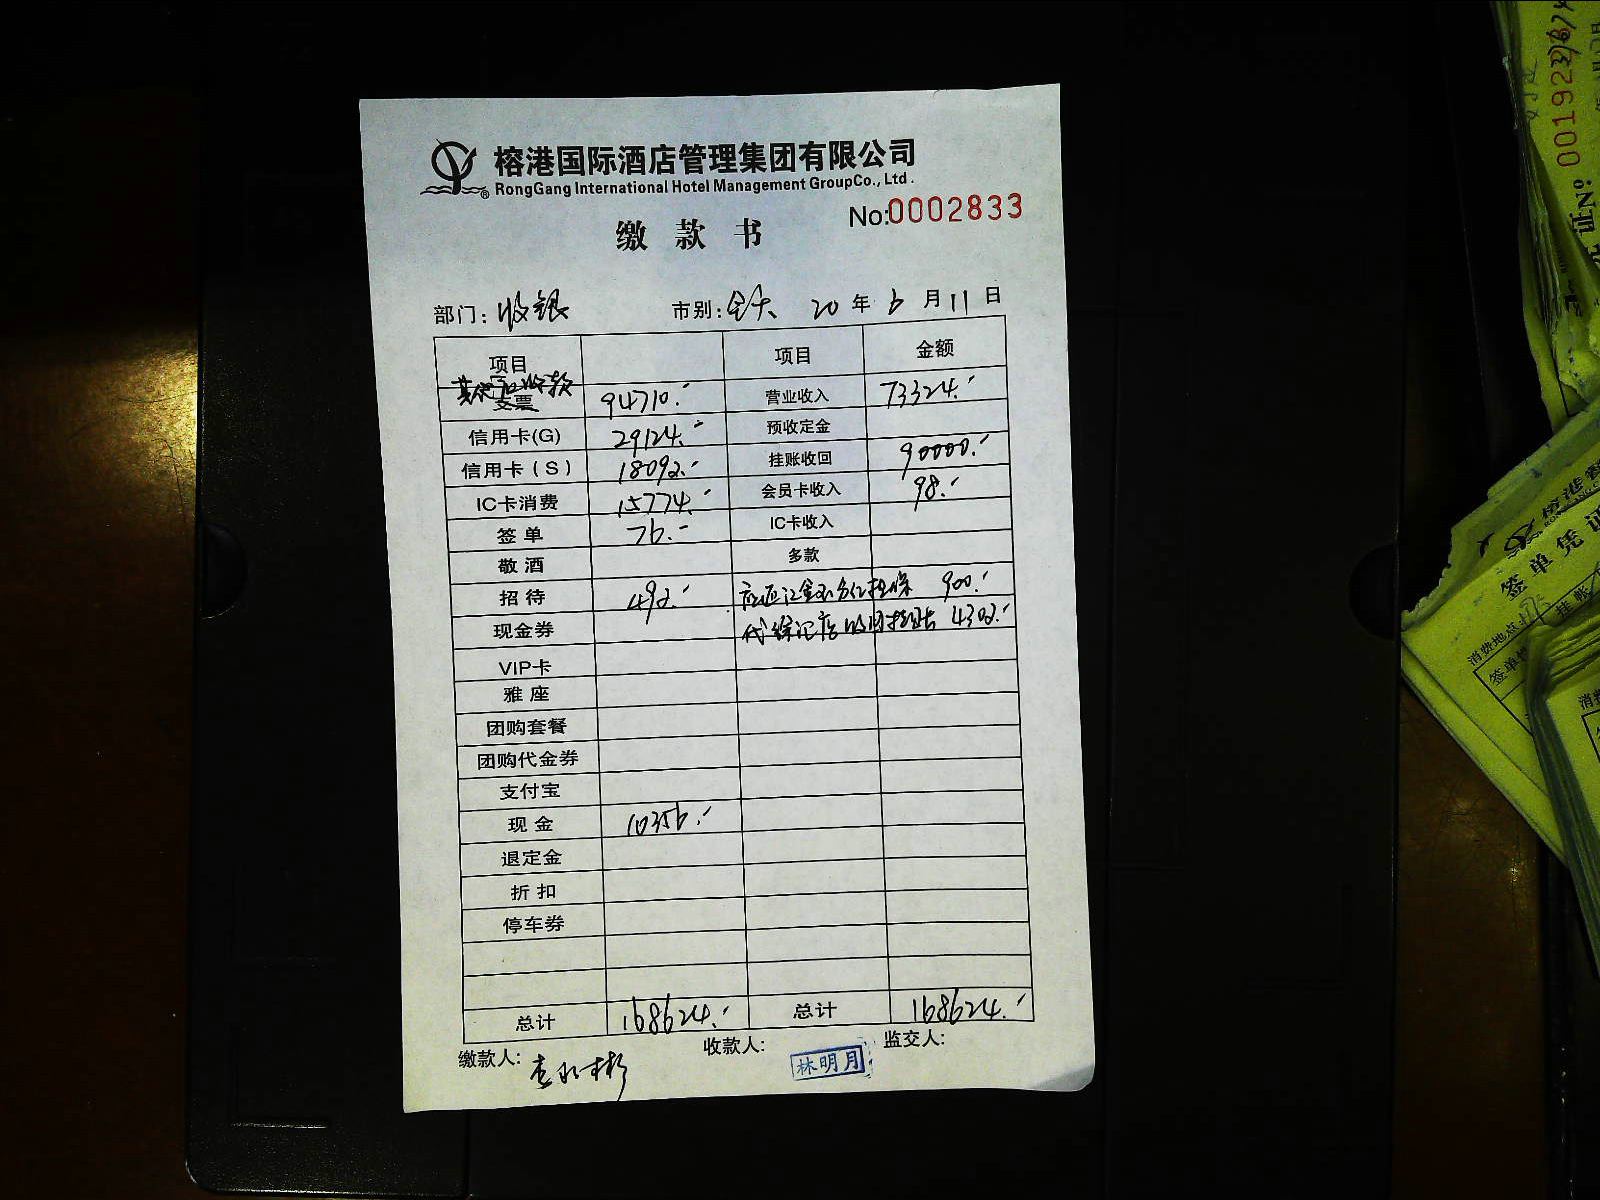 榕港国际酒店管理集团有限公司
RongGang International Hotel Management GroupCo., Ltd.
No:0002833
缴款书
部门: 收银 市别: 全天 20 年 6 月 11 日
项目 项目 金额
支票 94710.- 营业收入 73324.-
信用卡(G) 29124.- 预收定金
信用卡(S) 18092.- 挂账收回 90000.-
IC卡消费 15774.- 会员卡收入 98.-
签单 76.- IC卡收入
敬酒 多款
招待 492.- 900.-
现金券 4302.-
VIP卡
雅座
团购套餐
团购代金券
支付宝
现金 10356.-
退定金
折扣
停车券
总计 168624.- 总计 168624.-
缴款人: 收款人: 林明月 监交人:
证No: 00192
签单凭证
消费地点
挂帐